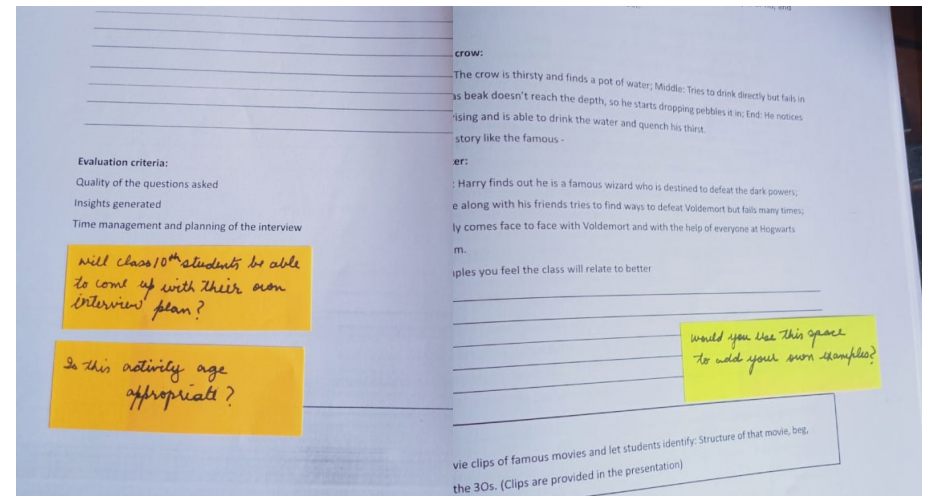 Evaluation criteria:
Quality of the questions asked
Insights generated
Time management and planning of the interview
will class 10th students be able
to come up with their own
interview plan?
Is this activity age
appropriate?
crow:
The crow is thirsty and finds a pot of water; Middle: Tries to drink directly but fails in
as beak doesn't reach the depth, so he starts dropping pebbles it in; End: He notices
ising and is able to drink the water and quench his thirst.
story like the famous -
er:
: Harry finds out he is a famous wizard who is destined to defeat the dark powers;
e along with his friends tries to find ways to defeat Voldemort but fails many times;
ly comes face to face with Voldemort and with the help of everyone at Hogwarts
m.
ples you feel the class will relate to better
would you use this space
to add your own examples?
vie clips of famous movies and let students identify: Structure of that movie, beg,
the 3Os. (Clips are provided in the presentation)